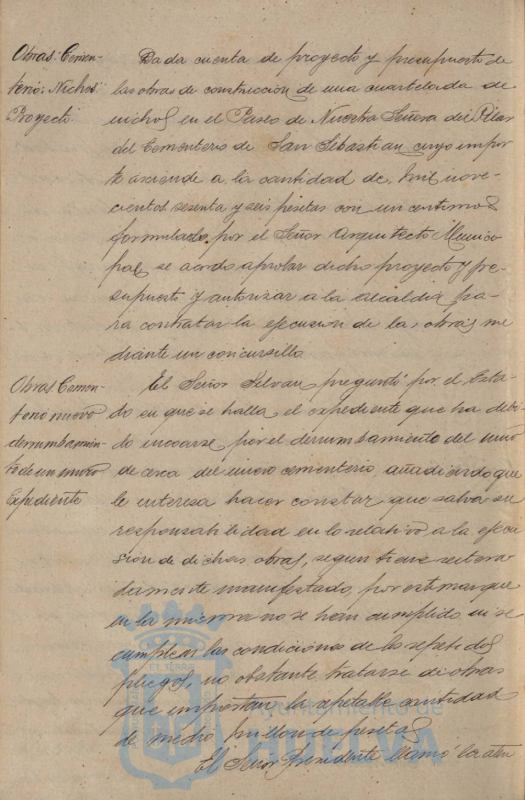 Obras: Cemen-
terio: Nichos:
Proyecto.
Dada cuenta de proyecto y presupuesto de
las obras de construccion de una cuartelada de
nichos en el Paseo de Nuestra Señora del Pilar
del Cementerio de San Sebastian cuyo impor
te asciende a la cantidad de mil nove-
cientos sesenta y seis pesetas con un centimo
formulado por el Señor Arquitecto Munici
pal se acordó aprobar dicho proyecto y pre-
supuesto y autorizar a la alcaldia pa-
ra contratar la ejecusion de las obras me
diante un concursillo
Obras Cemen-
terio nuevo
derrumbamien-
to de un muro
Expediente
El Señor Selvan, preguntó por el Esta-
do en que se halla el expediente que ha debi-
do incoarse por el derrumbamiento del muro
de cerca del nuevo cementerio añadiendo que
le interesa hacer constar que salva su
responsabilidad en lo relativo a la ejecu
sion de dichas obras, segun tiene reitera
damente manifestado, por estimar que
en la misma no se han cumplido ni se
cumplen las condiciones de los repetidos
pliegos, no obstante tratarse de obras
que importan la respetable cantidad
de medio millon de pesetas
El Señor presidente llamó la aten
Ayuntamiento de
HUELVA